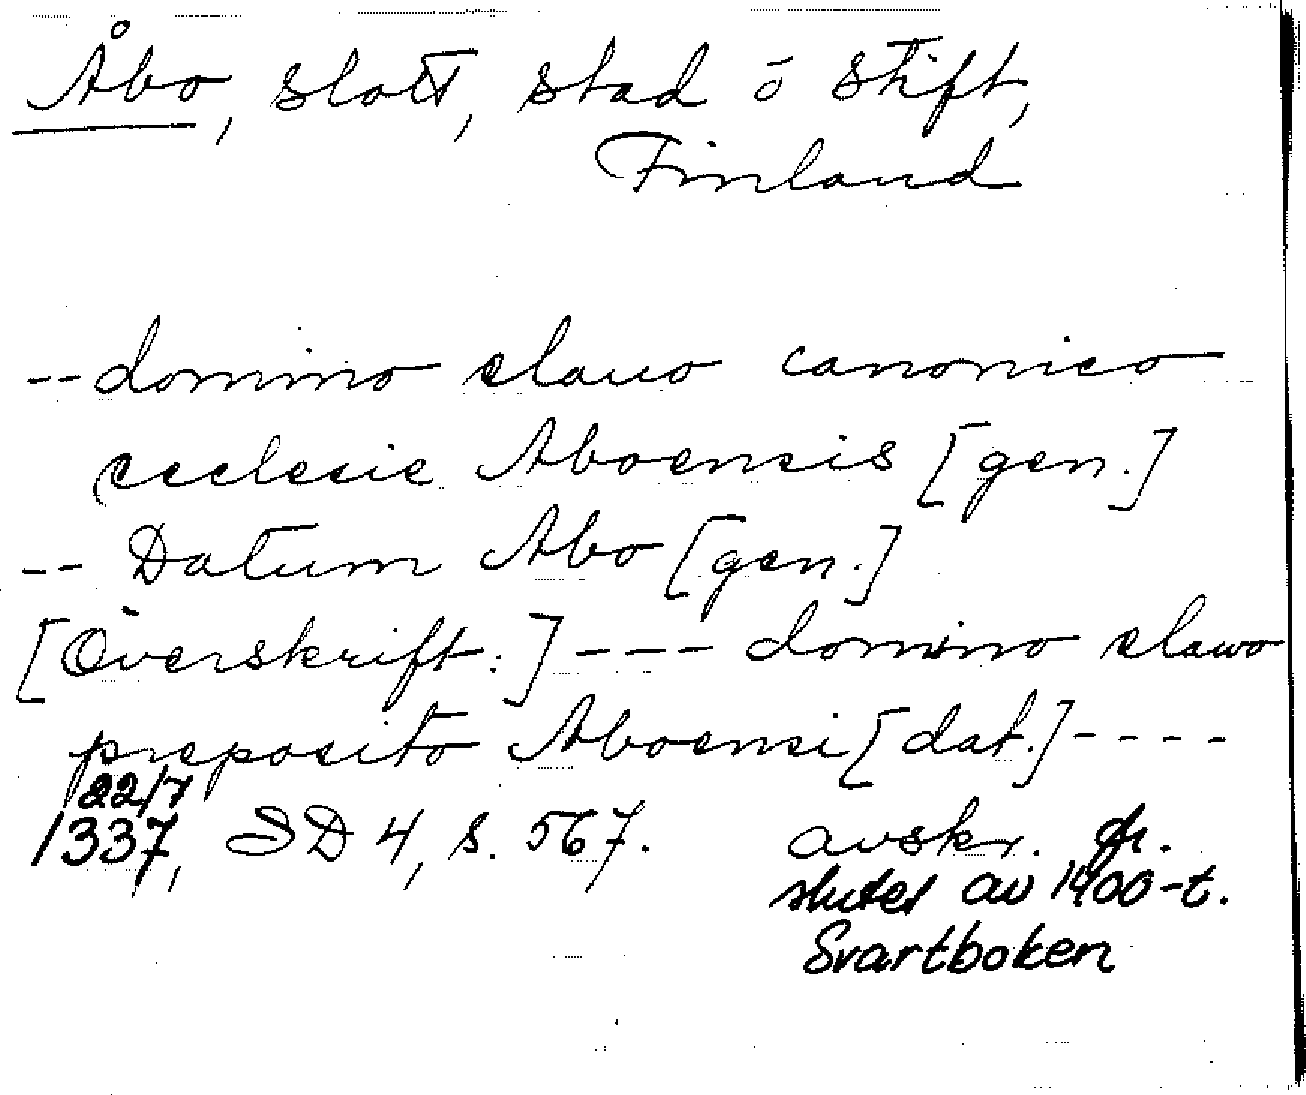 Åbo, slott, stad o stift,
Finland
-- domino elauo canonico
ecclesie Aboensis [gen.]
-- Datum Abo [gen.]
[Överskrift:] --- domino elawo
preposito Aboensi [dat.] ----
22/7
1337, SD 4, s. 567. avskr. fr.
slutet av 1400-t.
Svartboken